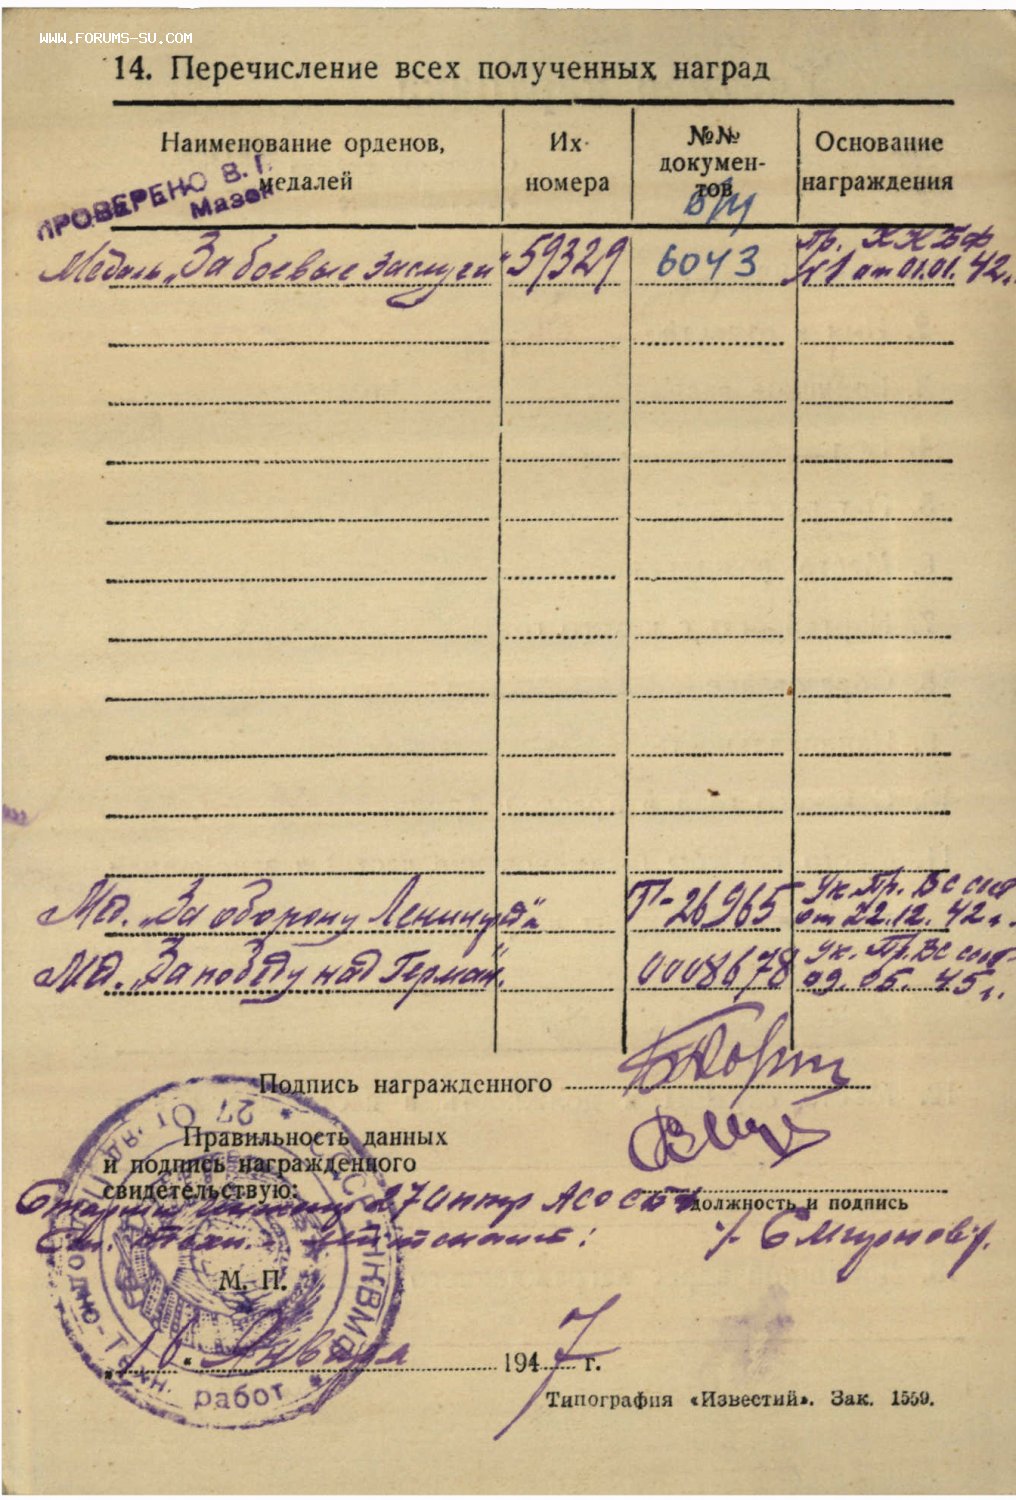 WWW.FORUMS-SU.COM
14. Перечисление всех полученных наград
Наименование орденов, медалей
Их номера
№№ документов
Основание награждения
ПРОВЕРЕНО В. Г.
Мазен
б/н
Медаль „За боевые заслуги“ 59329 6043 Пр. ККБФ
№1 от 01.01.42 г.
Мед. „За оборону Ленинград“ Т-26965 Ук. Пр. ВС СССР
от 22.12.42 г.
Мед. „За победу над Герман.“ 0008678 Ук. Пр. ВС СССР
09.05.45 г.
Подпись награжденного
Правильность данных
и подпись награжденного
свидетельствую:
Старший инженер 27
должность и подпись
Ст. техн. лейтенант: /Смирнов/.
М. П.
„16“ Января 1947 г.
27 От
СССР НКВМФ
водно-Техн. работ
Типография «Известий». Зак. 1559.